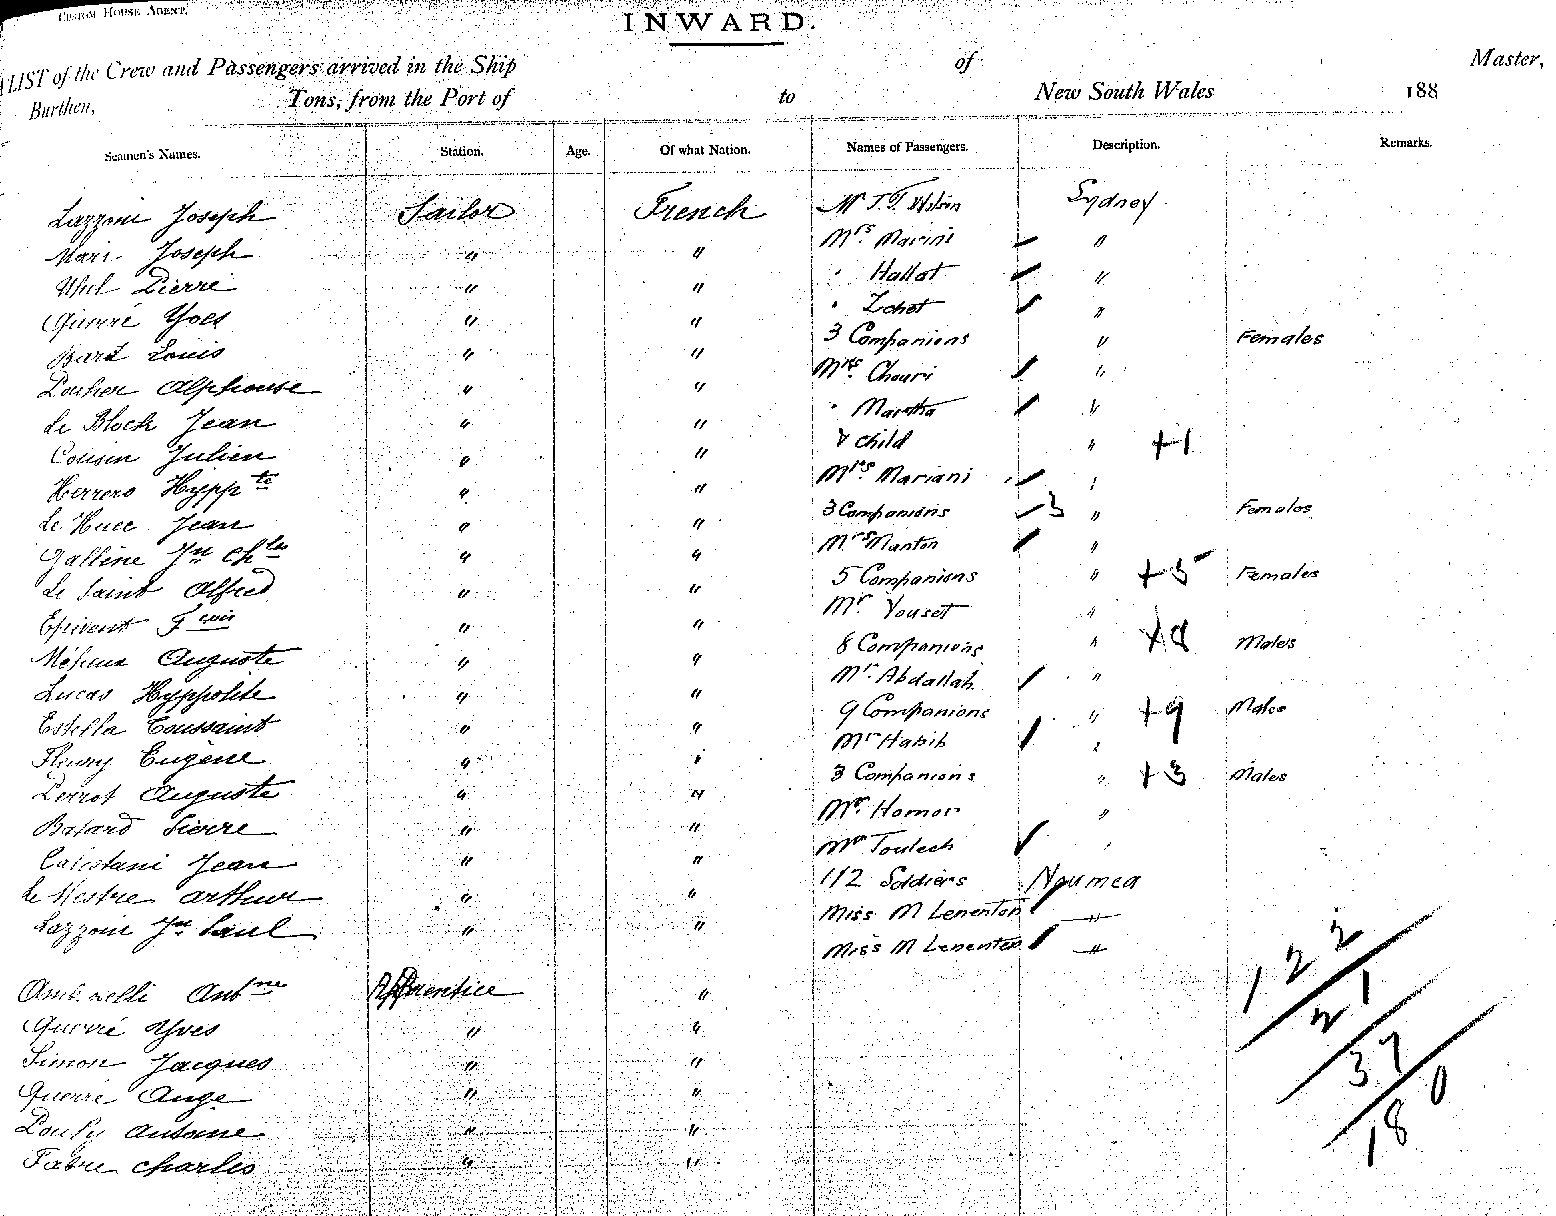 CUSTOM HOUSE AGENT.
INWARD.
LIST of the Crew and Passengers arrived in the Ship of Master,
Burthen, Tons, from the Port of to New South Wales 188
Seamen's Names. Station. Age. Of what Nation. Names of Passengers. Description. Remarks.
Lazzoni Joseph Sailor French Mr T. T. Sydney
Joseph " " Mrs. Marini "
Pierre " " " Hallot "
Querré Yves " " " "
Bard Louis " " 3 Companions " Females
Alphonse " " Mrs. Chouri "
Le Bloch Jean " " " Martha "
Cousin Julien " " & child " +1
Herrero Hyppte " " Mrs. Mariani "
Le Huec Jean " " 3 Companions 3 " Females
Galline Jn Chles " " Mrs Manton "
Le Saint Alfred " " 5 Companions " +5 Females
Epivent " " Mr. Youset "
Auguste " " 8 Companions " +8 Males
Lucas Hyppolite " " Mr. Abdallah "
Estella Toussaint " " 9 Companions " +9 Males
Fleury Eugène " " Mr Habib "
Perrot Auguste " " 3 Companions " +3 Males
Pierre " " Mr. Homor "
Jean " " Mr Toulech "
Le Mestre Arthur " " 112 Soldiers Noumea
Lazzoni Jn Paul " " Miss M Lenenton "
Miss M Lenenton "
122
Antne Apprentice "
Querré Yves " "
21
Simon Jacques " "
37
Querré Ange " "
180
Antoine " "
Fabre Charles " "